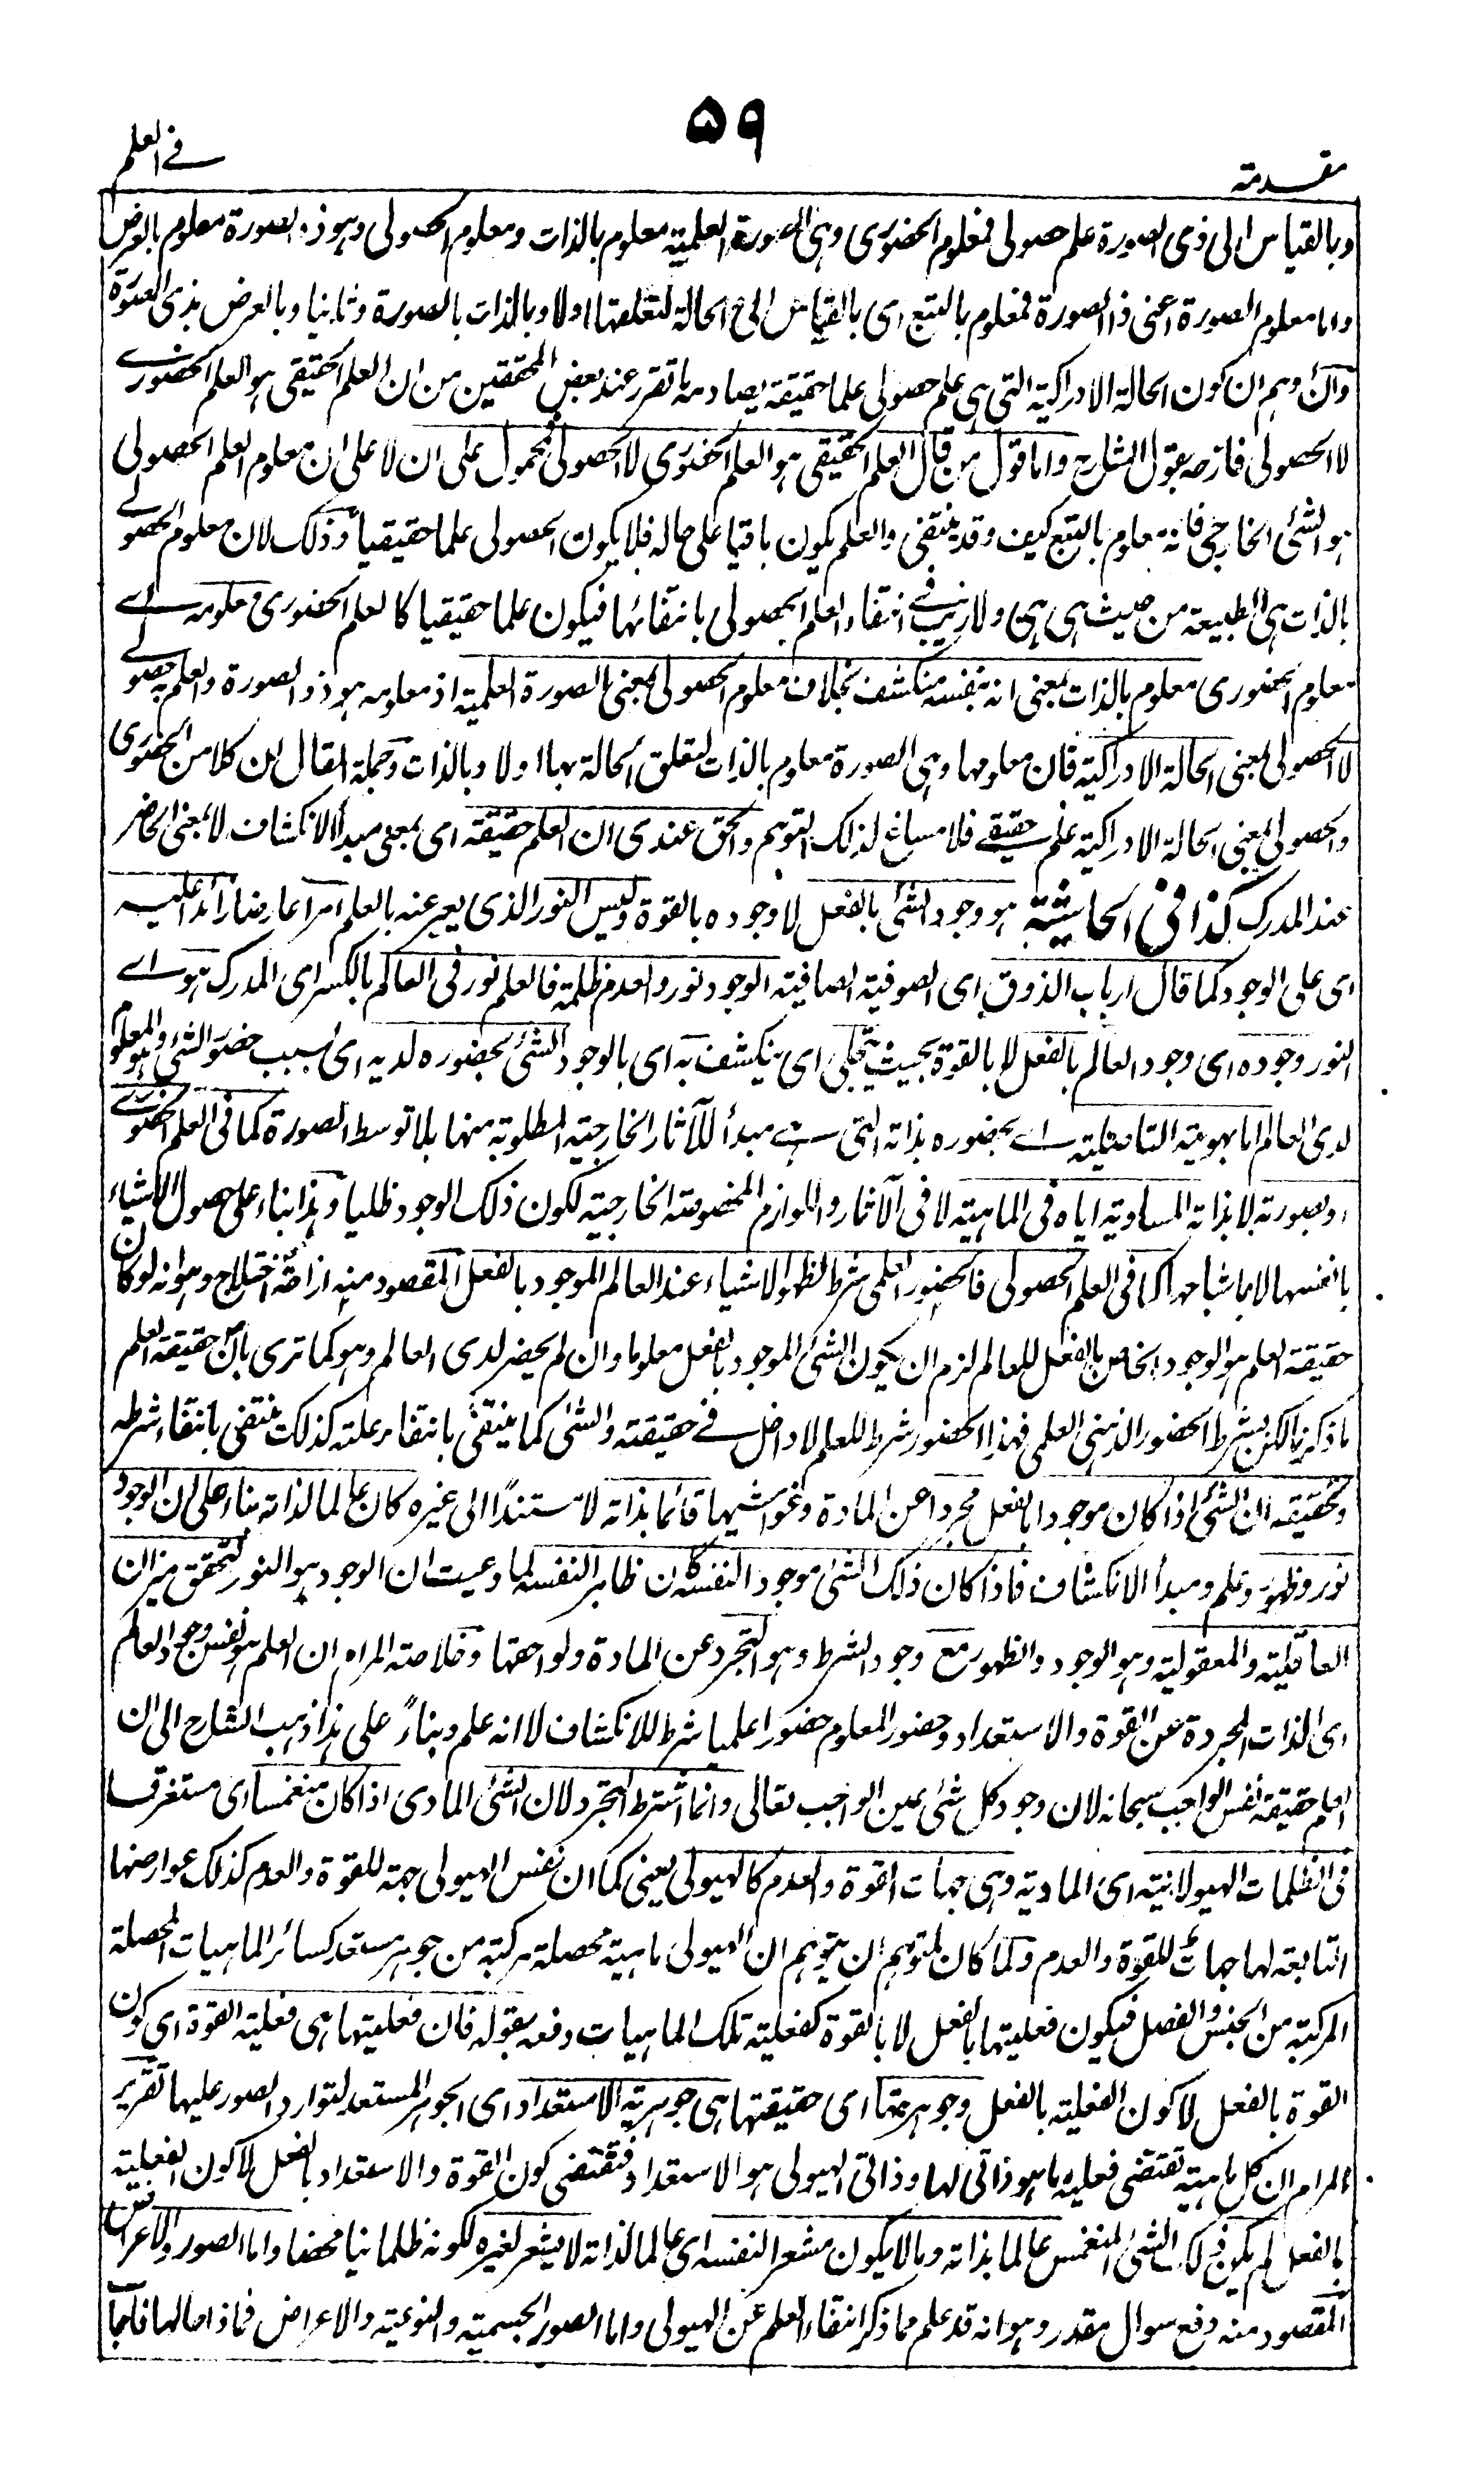 ٥٩
مقدمته
فے العلم
وبالقياس الى ذى الصورة علم حصولى فمعلوم الحضورى وہى الصورة العلمية معلوم بالذات ومعلوم الحصولى وہو ذو الصورة معلوم بالعرض
واما معلوم الصورة اعنى ذا الصورة فمعلوم بالتبع اى بالقياس الى الحالة لتعلقها اولا وبالذات بالصورة وثانيا وبالعرض بذى الصورة
وان وہم ان كون الحالة الادراكية التى ہى علم حصولى علما حقيقة يصادمه ما تقرر عند بعض المحققين من ان العلم الحقيقى ہو العلم الحضورے
لا الحصولى فازحه بقول الشارح واما قول من قال العلم الحقيقى ہو العلم الحضورى لا الحصولى فمحمول على ان لا على ان معلوم العلم الحصولى
ہو الشئ الخارجى فانه معلوم بالتبع كيف وقد ينتفى والعلم يكون باقيا على حاله فلا يكون الحصولى علما حقيقيا وذلك لان معلوم الحصولے
بالذات ہى الطبيعة من حيث ہى ہى ولا ريب فے انتفاء العلم الحصولى بانتفائها فيكون علما حقيقيا كالعلم الحضورى ومعلومه اے
معلوم الحضورى معلوم بالذات بمعنى انه بنفسه منكشف بخلاف معلوم الحصولى بمعنى الصورة العلمية اذ معلومه ہو ذو الصورة والعلم به حصولے
لا الحصولى بمعنى الحالة الادراكية فان معلومها وہى الصورة معلوم بالذات لتعلق الحالة بها اولا وبالذات وجملة المقال ان كلا من الحضورى
والحصولى بمعنى الحالة الادراكية علم حقيقے فلا مساغ لذلك التوہم والحق عندى ان العلم حقيقة اى بمعنى مبدأ الانكشاف لا بمعنى الحاضر
عند المدرك كذا فى الحاشية ہو وجود الشئ بالفعل لا وجوده بالقوة وليس النور الذى يعبر عنه بالعلم امرا عارضا زائدا عليه
اى على الوجود كما قال ارباب الذوق اى الصوفية الصافية الوجود نور والعدم ظلمة فالعلم نور فى العالم بالكسر اى المدرك ہو اے
النور وجوده اى وجود العالم بالفعل لا بالقوة بحيث يتجلى اى ينكشف به اى بالوجود الشئ بحضوره لديه اى بسبب حضور الشئ وہو المعلوم
لدى العالم اما بهويته التاصلية اے بحضوره بذاته التى ہے مبدأ للآثار الخارجية المطلوبة منها بلا توسط الصورة كما فى العلم الحضورے
او بصورته لا بذاته المساوية اياه فى الماہية لا فى الآثار واللوازم المخصوصة الخارجية لكون ذلك الوجود ظليا وہذا بناء على حصول الاشياء
بانفسها لا باشباحها كما فى العلم الحصولى فالحضور العلمى شرط لظهور الاشياء عند العالم الموجود بالفعل المقصود منه ازاحة اختلاج وہو انه لو كان
حقيقة العلم ہو الوجود الخاص بالفعل للعالم لزم ان يكون الشئ الموجود بالفعل معلوما وان لم يحضر لدى العالم وہو كما ترى بان حقيقة العلم
ما ذكرنا لكن بشرط الحضور الذہنى العلمى فهذا الحضور شرط للعلم لا داخل فے حقيقته والشئ كما ينتفى بانتفاء علته كذلك ينتفى بانتفاء شرطه
وتحقيقه ان الشئ اذا كان موجودا بالفعل مجردا عن المادة وغواشيها قائما بذاته لا مستندا الى غيره كان عالما لذاته بناء على ان الوجود
نور وظهور وعلم ومبدأ الانكشاف فاذا كان ذلك الشئ موجودا لنفسه كان ظاہرا لنفسه لما دعيت ان الوجود ہو النور لتحقق ميزان
العاقلية والمعقولية وہو الوجود والظهور مع وجود الشرط وہو التجرد عن المادة ولواحقها وخلاصة المرام ان العلم ہو نفس وجود العالم
اى الذات المجردة عن القوة والاستعداد وحضور المعلوم حضورا علميا شرط للانكشاف لا انه علم وبناءً على ہذا ذہب الشارح الى ان
العلم حقيقة نفس الواجب سبحانه لان وجود كل شئ عين الواجب تعالى وانما اشترط التجرد لان الشئ المادى اذا كان منغمسا اى مستغرقا
فى الظلمات الهيولانية اى المادية وہى جهات القوة والعدم كالهيولى يعنى كما ان نفس الهيولى جهة للقوة والعدم كذلك عوارضها
التابعة لها جهات للقوة والعدم ولما كان لمتوہم ان يتوہم ان الهيولى ماہية محصلة مركبة من جوہر مستعد كسائر الماہيات المحصلة
المركبة من الجنس والفصل فيكون فعليتها بالفعل لا بالقوة كفعلية تلك الماہيات دفعه بقوله فان فعليتها ہى فعلية القوة اى كون
القوة بالفعل لا كون الفعلية بالفعل وجوہريتها اى حقيقتها ہى جوہرية الاستعداد اى الجوہر المستعد لتوارد الصور عليها تقرير
المرام ان كل ماہية تقتضى فعلية ما ہو ذاتى لها وذاتى الهيولى ہو الاستعداد فتقتضى كون القوة والاستعداد بالفعل لا كون الفعلية
بالفعل لم يكن ذلك الشئ المنغمس عالما بذاته وما لا يكون مشعرا لنفسه اى عالما لذاته لا يشعر لغيره لكونه ظلمانيا محضا واما الصور والاعراض
المقصود منه دفع سوال مقدر وہو انه قد علم مما ذكر انتفاء العلم عن الهيولى واما الصور الجسمية والنوعية والاعراض فماذا حالها فاجاب